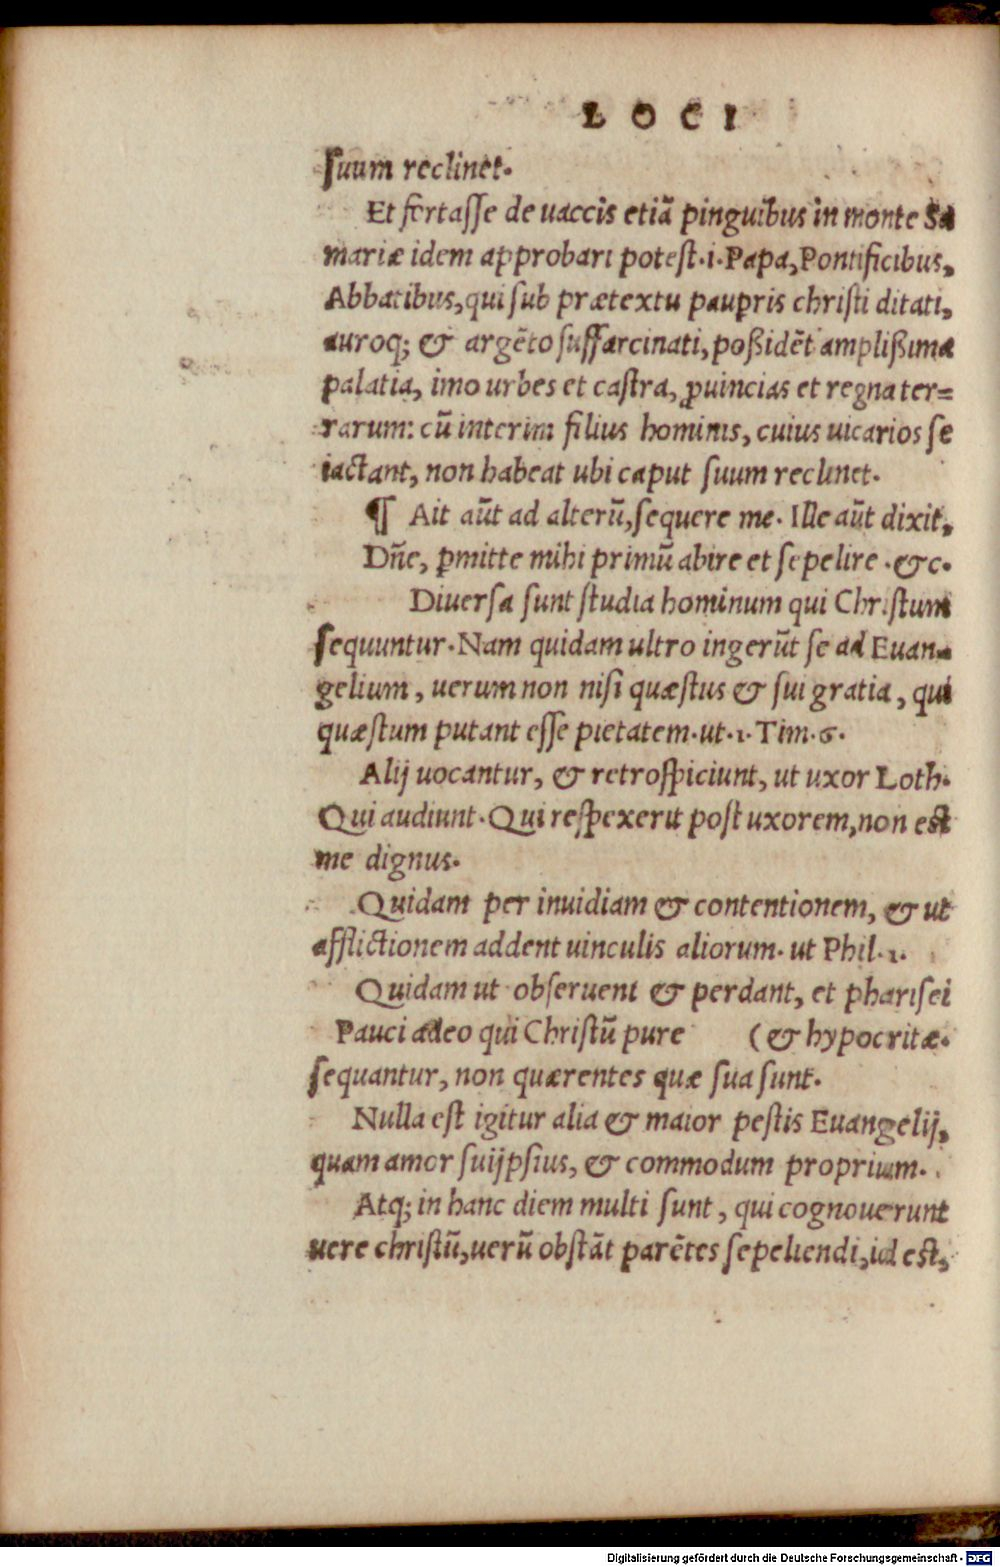 LOCI
ſuum reclinet.
Et fortaſſe de uaccis etiã pinguibus in monte Sa
mariæ idem approbari poteſt.i.Papa,Pontificibus,
Abbatibus,qui ſub prætextu pauꝑis chriſti ditati,
auroq; & argẽto ſuffarcinati, poßidẽt amplißima
palatia, imo urbes et caſtra, ꝓuincias et regna ter=
rarum: cũ interim filius hominis, cuius uicarios ſe
iactant, non habeat ubi caput ſuum reclinet.
¶ Ait aũt ad alterũ,ſequere me. Ille aũt dixit,
Dñe, ꝑmitte mihi primũ abire et ſepelire .&c.
Diuerſa ſunt ſtudia hominum qui Chriſtum
ſequuntur. Nam quidam ultro ingerũt ſe ad Euan-
gelium, uerum non niſi quæſtus & ſui gratia, qui
quæſtum putant eſſe pietatem.ut.1.Tim.6.
Alij uocantur, & retroſpiciunt, ut uxor Loth.
Qui audiunt. Qui reſpexerit poſt uxorem,non eſt
me dignus.
Quidam per inuidiam & contentionem, & ut
afflictionem addent uinculis aliorum. ut Phil.1.
Quidam ut obſeruent & perdant, et phariſei
Pauci adeo qui Chriſtũ pure (& hypocritæ.
ſequantur, non quærentes quæ ſua ſunt.
Nulla eſt igitur alia & maior peſtis Euangelij,
quam amor ſuijpſius, & commodum proprium.
Atq; in hanc diem multi ſunt, qui cognouerunt
uere chriſtũ,uerũ obſtãt parẽtes ſepeliendi,id eſt,
Digitalisierung gefördert durch die Deutsche Forschungsgemeinschaft - DFG